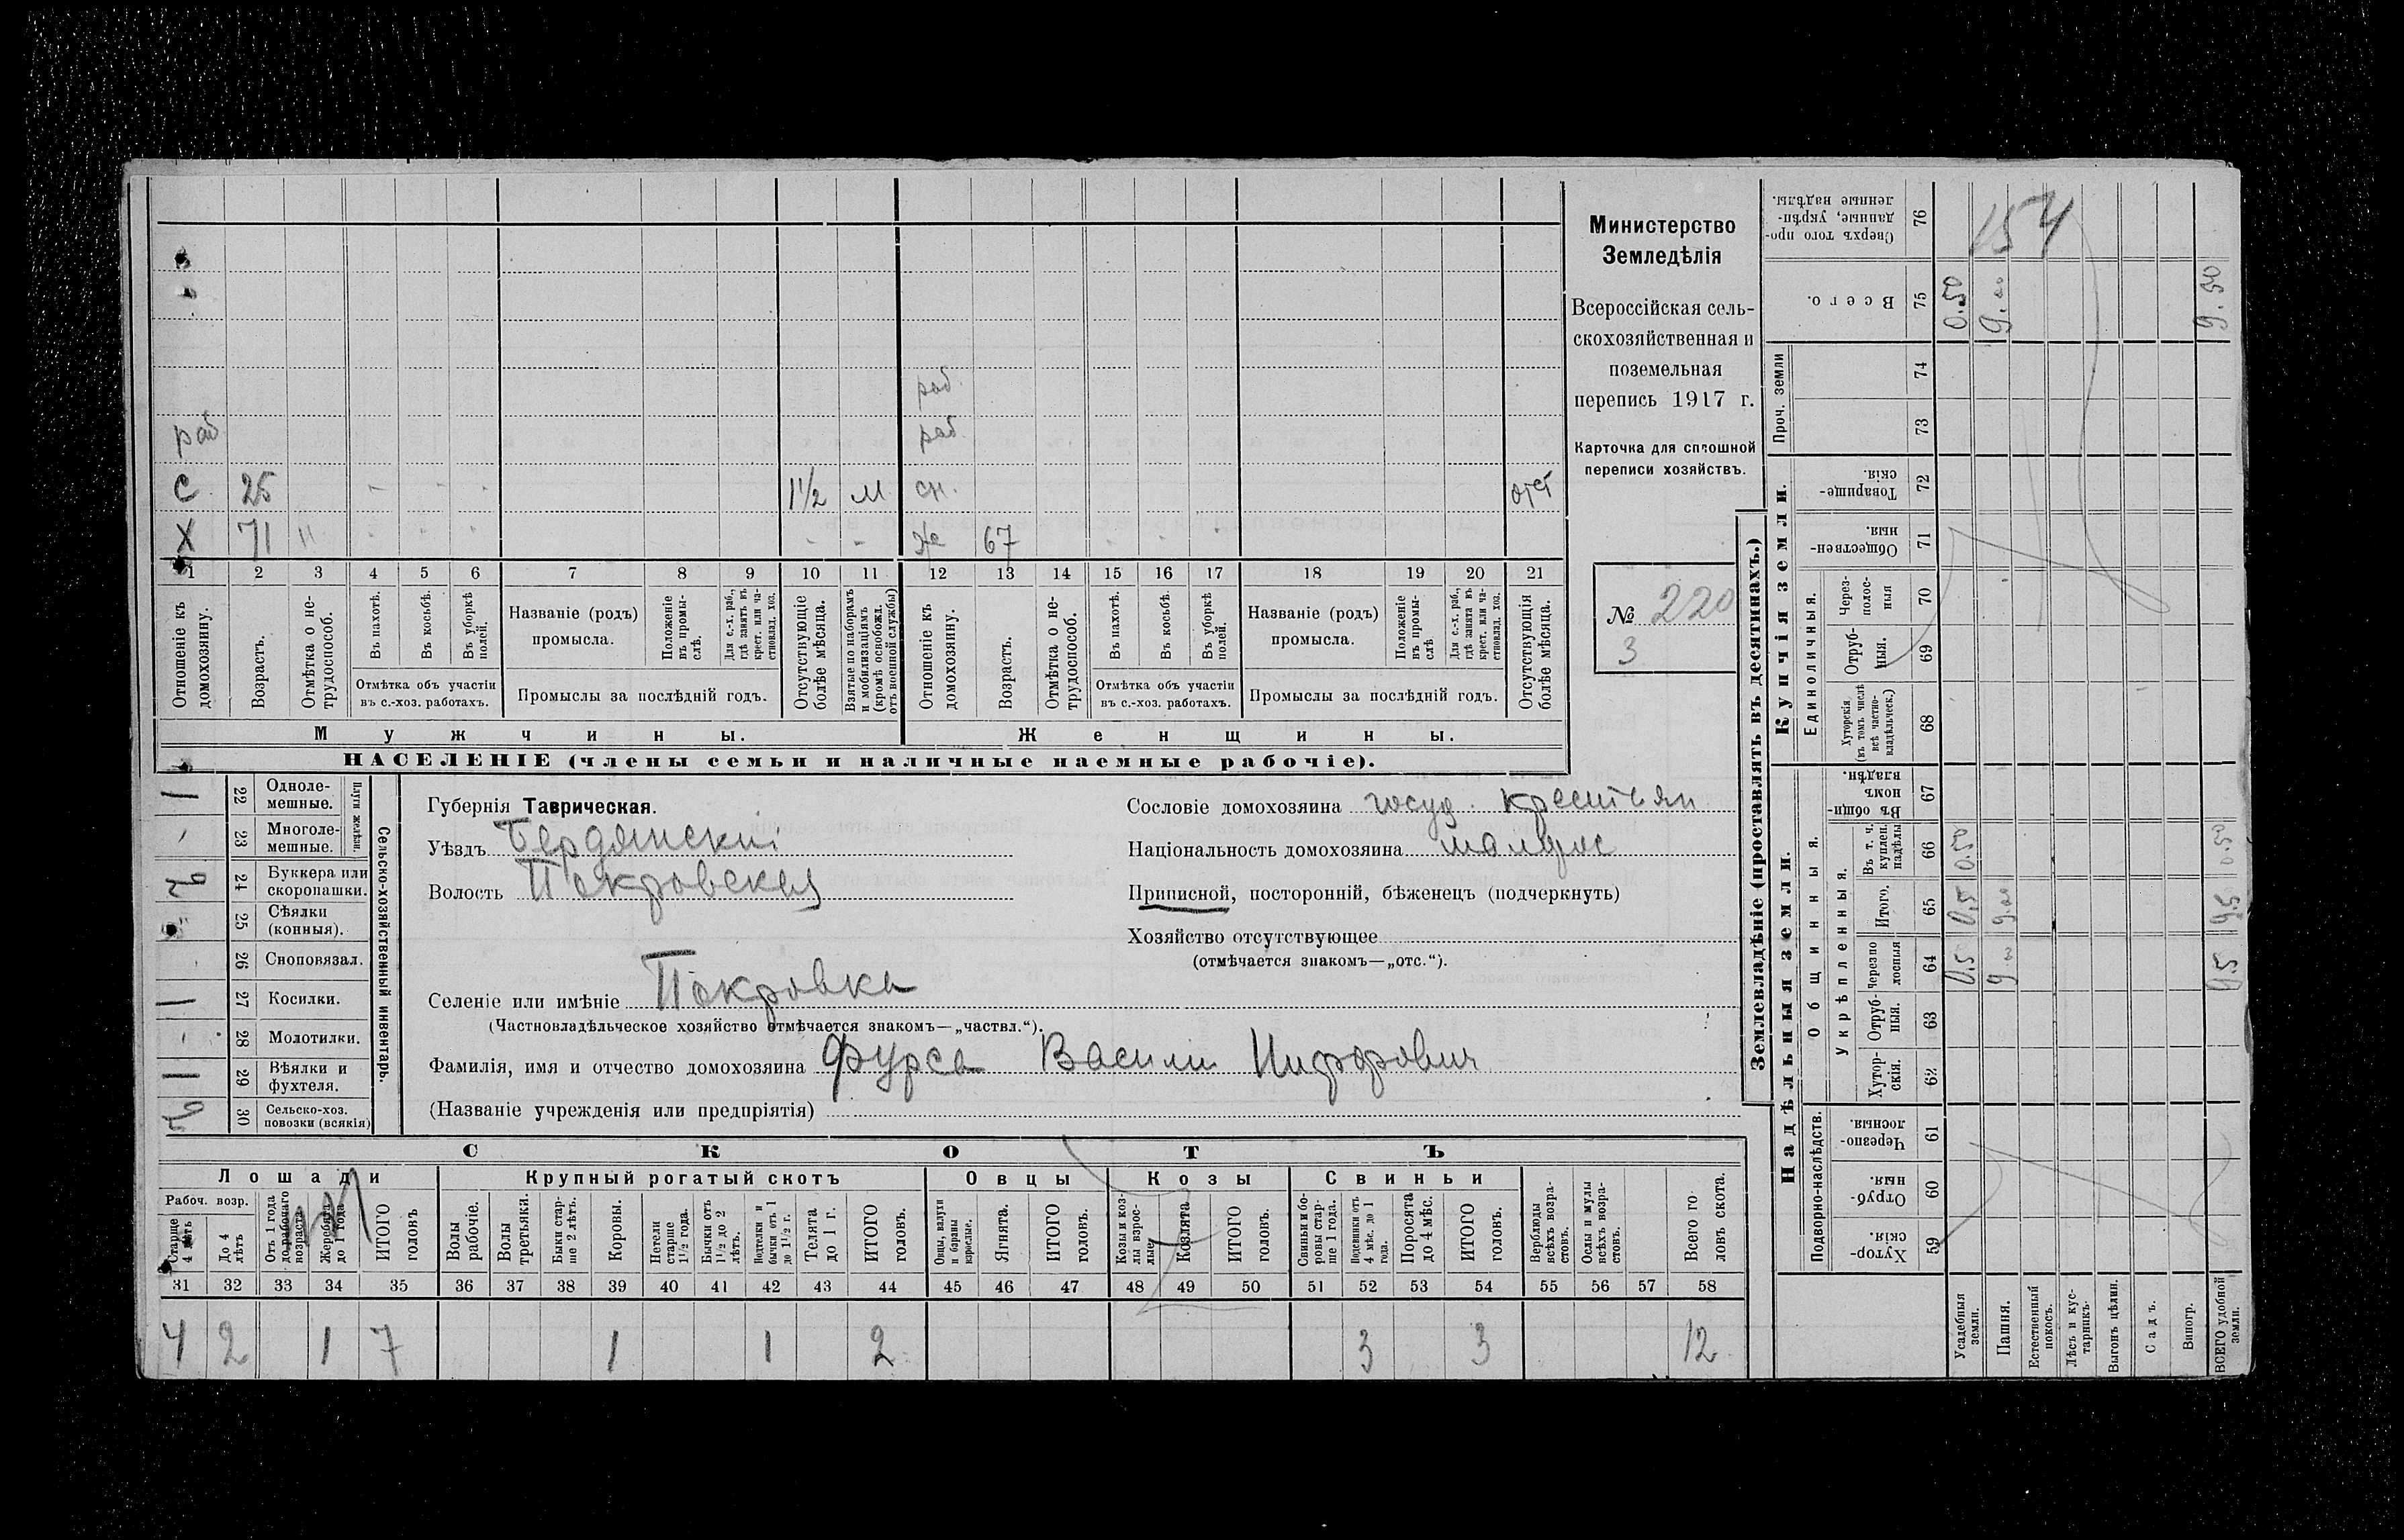 раб.
раб
раб.
С 25 - - - 1½ м сн. отст
Х 71 " - - - - - Же 67 - - -
1 2 3 4 5 6 7 8 9 10 11 12 13 14 15 16 17 18 19 20 21
Отношеніе къ домохозяину.
Возрастъ.
Отмѣтка о нетрудоспособ.
Въ пахотѣ.
Въ косьбѣ.
Въ уборкѣ полей.
Отмѣтка объ участіи
въ с.-хоз. работахъ.
Названіе (родъ)
промысла.
Положеніе въ промыслѣ.
Для с.-х. раб., гдѣ занятъ въ крест. или частновлад. хоз.
Промыслы за послѣдній годъ.
Отсутствующіе болѣе мѣсяца.
Взятые по наборамъ и мобилизаціямъ (кромѣ освобожд. отъ военной службы)
Отношеніе къ домохозяину.
Возрастъ.
Отмѣтка о нетрудоспособ.
Въ пахотѣ.
Въ косьбѣ.
Въ уборкѣ полей.
Отмѣтка объ участіи
въ с.-хоз. работахъ.
Названіе (родъ)
промысла.
Положеніе въ промыслѣ
Для с.-х. раб., гдѣ занята въ крест. или частновлад. хоз.
Промыслы за послѣдній годъ.
Отсутствующія болѣе мѣсяца.
Мужчины. Женщины.
НАСЕЛЕНІЕ (члены семьи и наличные наемные рабочіе).
Министерство
Земледѣлія
Всероссійская сель-
скохозяйственная и
поземельная
перепись 1917 г.
Карточка для сплошной
переписи хозяйствъ.
№ 220
3
Сельско-хозяйственный инвентарь.
Плуги желѣзн.
1 22 Одноле-
мешные.
- 23 Многоле-
мешные.
24 Буккера или
скоропашки.
" 25 Сѣялки
(конныя).
26 Сноповязал.
1 27 Косилки.
- 28 Молотилки.
1 29 Вѣялки и
фухтеля.
30 Сельско-хоз.
повозки (всякія)
Губернія Таврическая.
Уѣздъ Бердянскій
Волость Покровская
Селеніе или имѣніе Покровка
(Частновладѣльческое хозяйство отмѣчается знакомъ—„частвл.“).
Фамилія, имя и отчество домохозяина Фурса Васили Нифорович
(Названіе учрежденія или предпріятія)
Сословіе домохозяина госуд. крестьян
Національность домохозяина малорос
Приписной, посторонній, бѣженецъ (подчеркнуть)
Хозяйство отсутствующее
(отмѣчается знакомъ—„отс.“).
СКОТЪ
Лошади Крупный рогатый скотъ Овцы Козы Свиньи
Рабоч. возр.
Старше 4 лѣтъ
До 4 лѣтъ
Отъ 1 года до рабочаго возраста
Жеребята до 1 года
ИТОГО головъ
Волы рабочіе.
Волы третьяки.
Быки старше 2 лѣтъ.
Коровы.
Нетели старше 1½ года.
Бычки отъ 1½ до 2 лѣтъ.
Нетелки и бычки отъ 1 до 1½ г.
Телята до 1 г.
ИТОГО головъ.
Овцы, валухи и бараны взрослые.
Ягнята.
ИТОГО головъ.
Козы и козлы взрослые
Козлята
ИТОГО головъ.
Свиньи и боровы старше 1 года.
Подсвинки отъ 4 мѣс. до 1 года.
Поросята до 4 мѣс.
ИТОГО головъ.
Верблюды всѣхъ возрастовъ.
Ослы и мулы всѣхъ возрастовъ.
Всего головъ скота.
31 32 33 34 35 36 37 38 39 40 41 42 43 44 45 46 47 48 49 50 51 52 53 54 55 56 57 58
4 2 1 7 1 1 2 3 3 12
Землевладѣніе (проставлять въ десятинахъ.)
Надѣльныя земли. Купчія земли.
Подворно-наслѣдств.
Общинныя.
Укрѣпленныя.
Единоличныя.
Проч. земли
Сверхъ того проданные, укрѣпленные надѣлы. 76 154
Всего. 75 0.50 9.00 9.50
74
73
Товарищескія. 72
Общественныя. 71
Черезполосныя 70
Отрубныя. 69
Хуторскія (въ томъ числѣ всѣ частновладѣльческ.) 68
Въ общинномъ владѣн. 67
Въ т. ч. куплен. надѣлы 66 0.50 0.50
Итого. 65 0.5 9.00 9.5
Черезполосныя 64 0.5 9.5
Отрубныя. 63
Хуторскія. 62
Черезполосныя. 61
Отрубныя. 60
Хуторскія. 59
Усадебныя земли.
Пашня.
Естественный покосъ.
Лѣсъ и кустарникъ.
Выгонъ цѣлин.
Садъ.
Виногр.
ВСЕГО удобной земли.